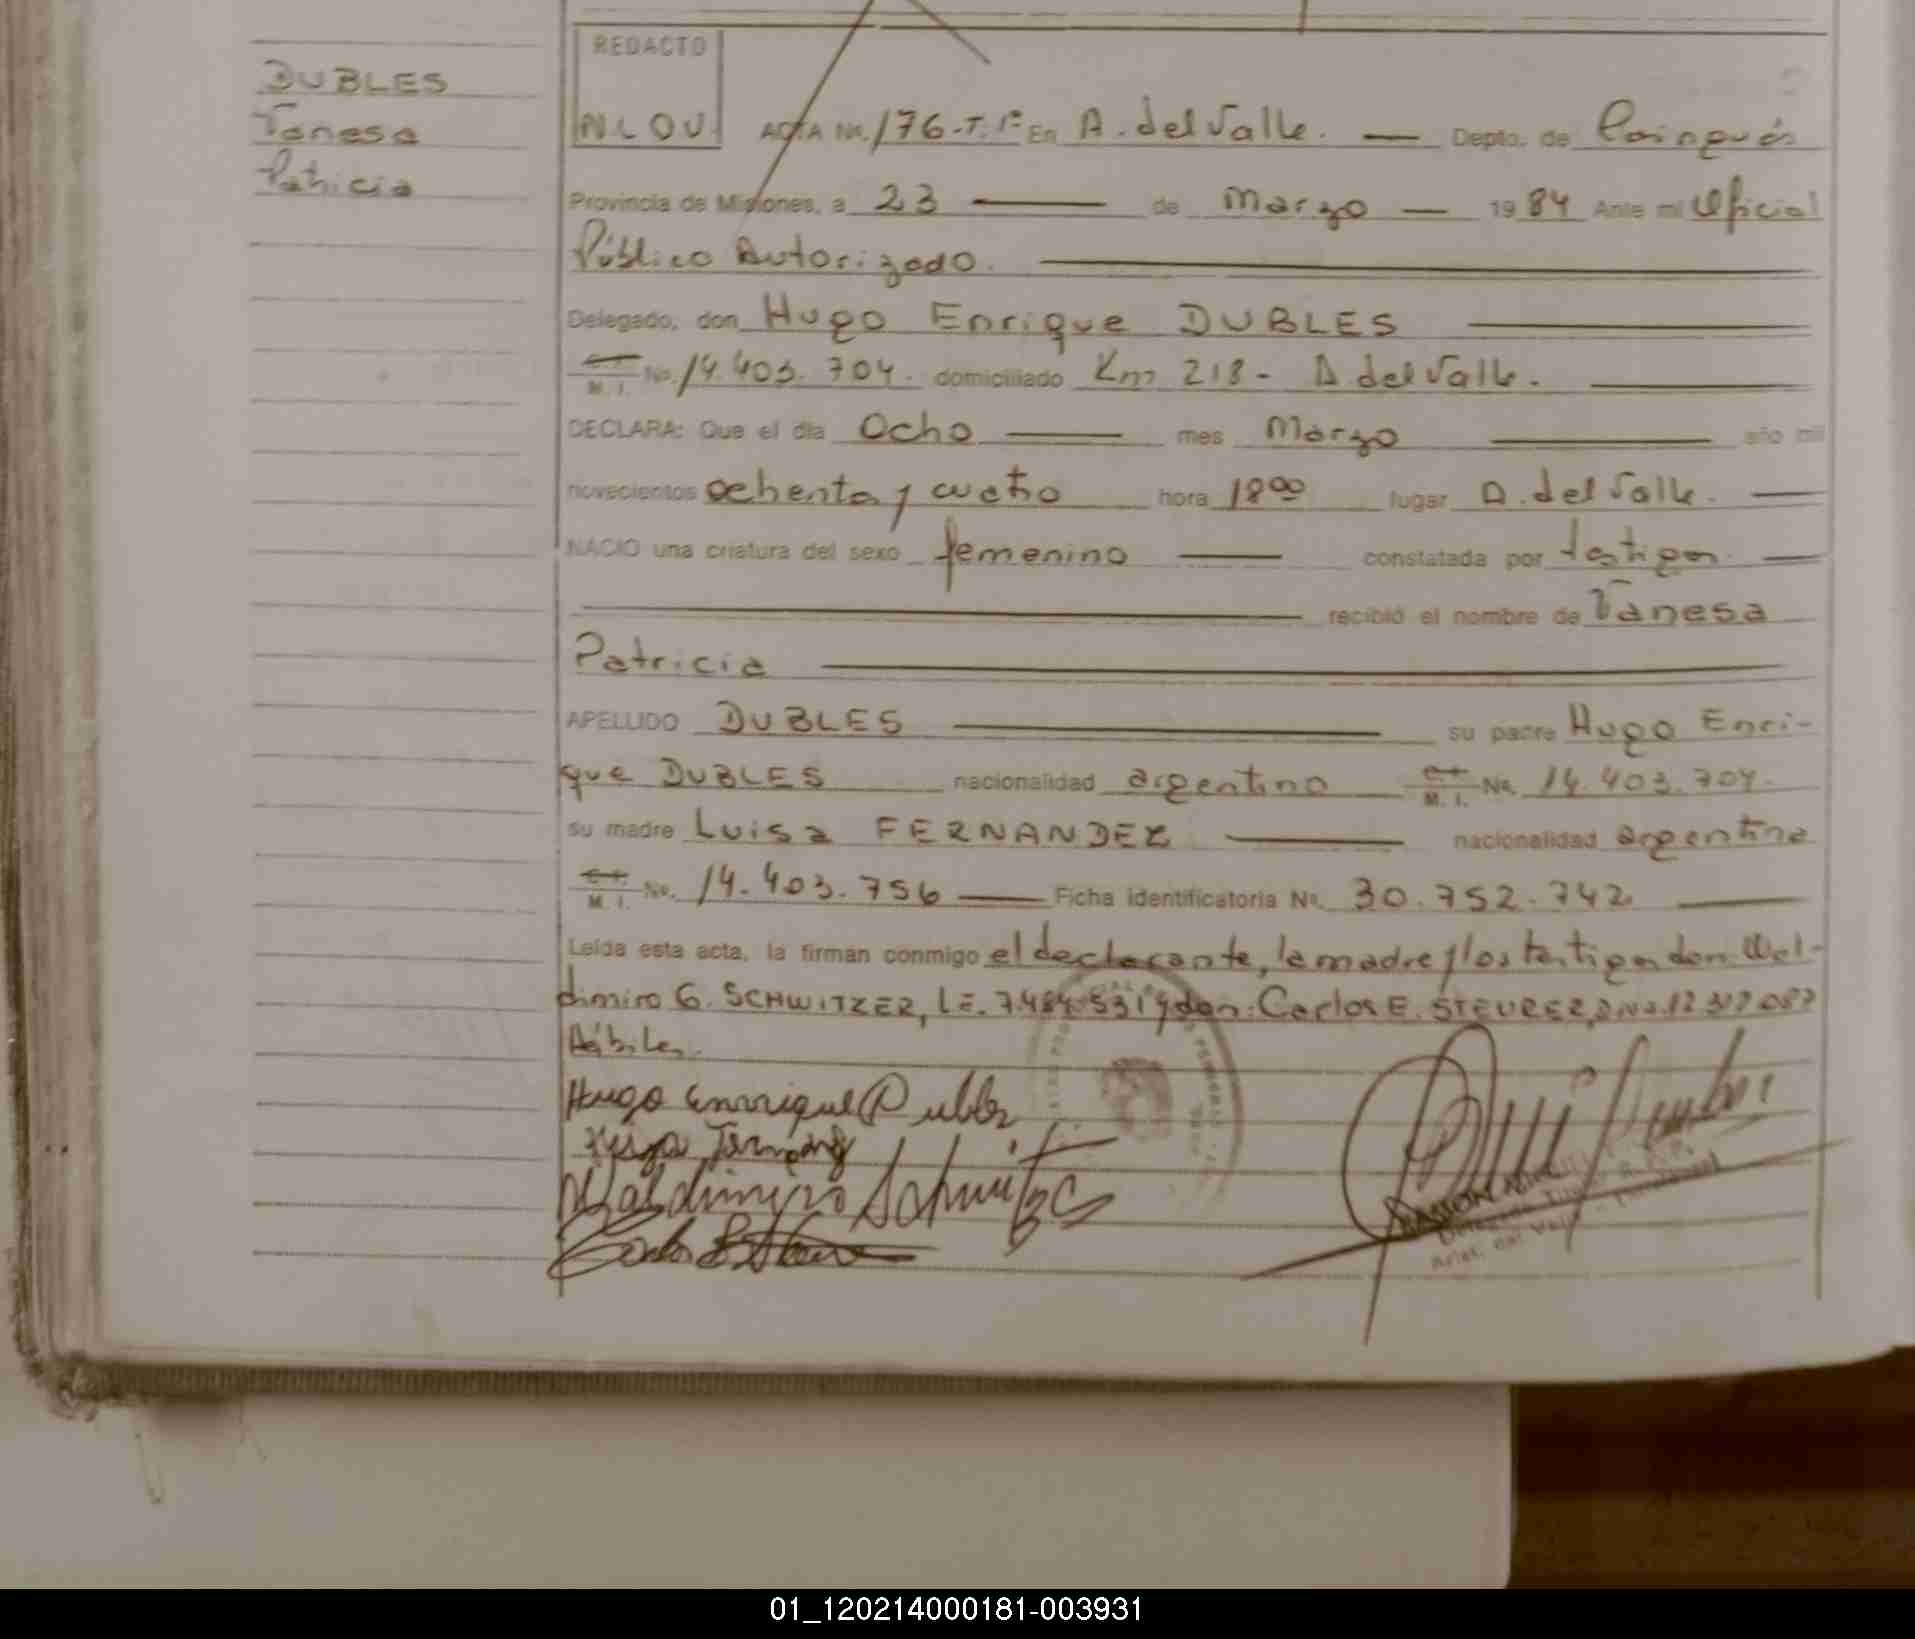 DUBLES
Vanesa
Patricia
REDACTO
N.L.O.V.
ACTA No. 176-T.1º En A. del Valle. — Depto. de Cainguás
Provincia de Misiones, a 23 — de Marzo — 1984 Ante mi Oficial
Público Autorizado.
Delegado, don Hugo Enrique DUBLES
M. I. No. 14.403.704. domiciliado Km 218 - A del Valle.
DECLARA: Que el dia Ocho — mes Marzo — año mil
novecientos ochenta y cuatro hora 18 00 lugar A. del Valle. —
NACIO una criatura del sexo femenino — constatada por testigos. —
recibió el nombre de Vanesa
Patricia
APELLIDO DUBLES — su padre Hugo Enri-
que DUBLES nacionalidad argentino M. I. No. 14.403.704.
su madre Luisa FERNANDEZ — nacionalidad argentina
M. I. No. 14.403.756 — Ficha identificatoria No. 30.752.742 —
Leída esta acta, la firman conmigo el declarante, la madre y los testigos don Wal-
dimiro G. SCHWITZER, L.E. 7.484.531 y don: Carlos E. STEURER, DNI. 12.317.087
Hábiles.
Hugo Enrrique Dubles
Waldimiro
RAMON
01_120214000181-003931